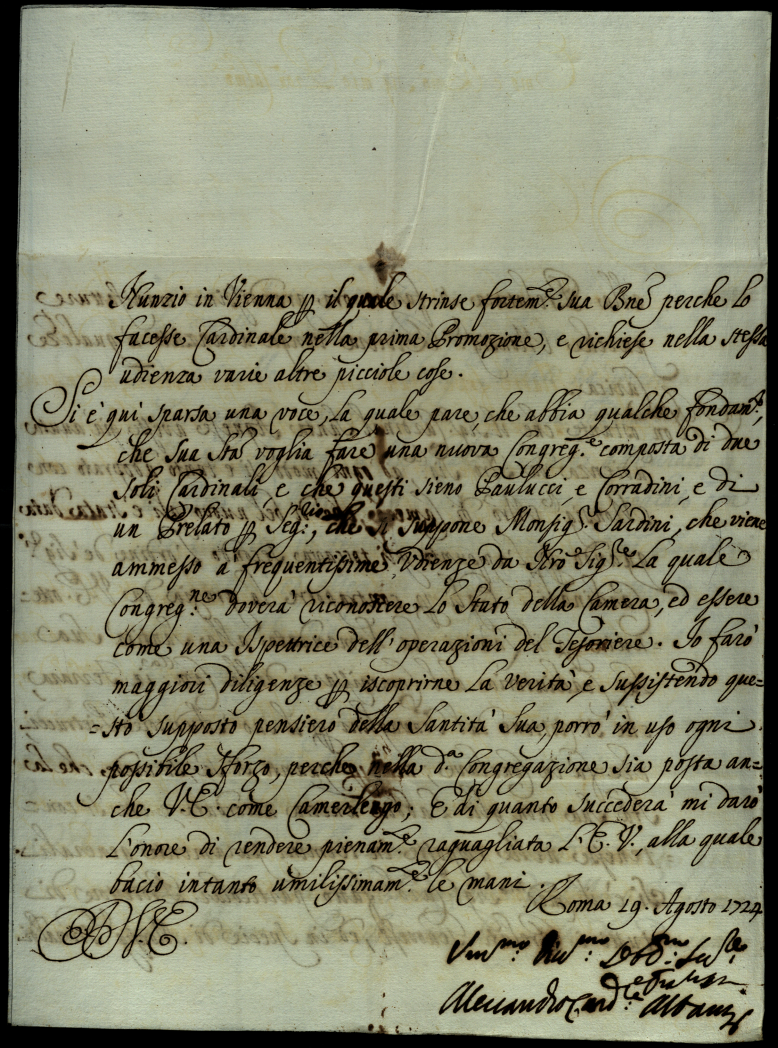 Nunzio in Vienna p il quale strinse fortem.e sua Bne perche lo
facesse Cardinale nella prima Promozione, e richiese nella stessa
udienza varie altre picciole cose.
Si è qui sparsa una voce, la quale pare, che abbia qualche fondam.to,
che sua Sta voglia fare una nuova Congreg.e composta di due
soli Cardinali e che questi sieno Paulucci, e Corradini, e di
un Prelato p Seg.rio, che si suppone Monsig.r Sardini, che viene
ammesso à frequentissime Udienze da Nro Sig.re La quale
Congreg.ne doverà riconoscere lo Stato della Camera, ed essere
come una Ispettrice dell'operazioni del Tesoriere. Io farò
maggiori diligenze p iscoprirne la verità, e sussistendo que=
=sto supposto pensiero della Santità Sua porrò in uso ogni
possibile sforzo, perche nella d.a Congregazione sia posta an=
che V.E. come Camerlengo; E di quanto succederà mi darò
l'onore di rendere pienam.e raguagliata L.E.V., alla quale
bacio intanto umilissimam.e le mani.
Roma 19. Agosto 1724
Alessandro Card.e Albani